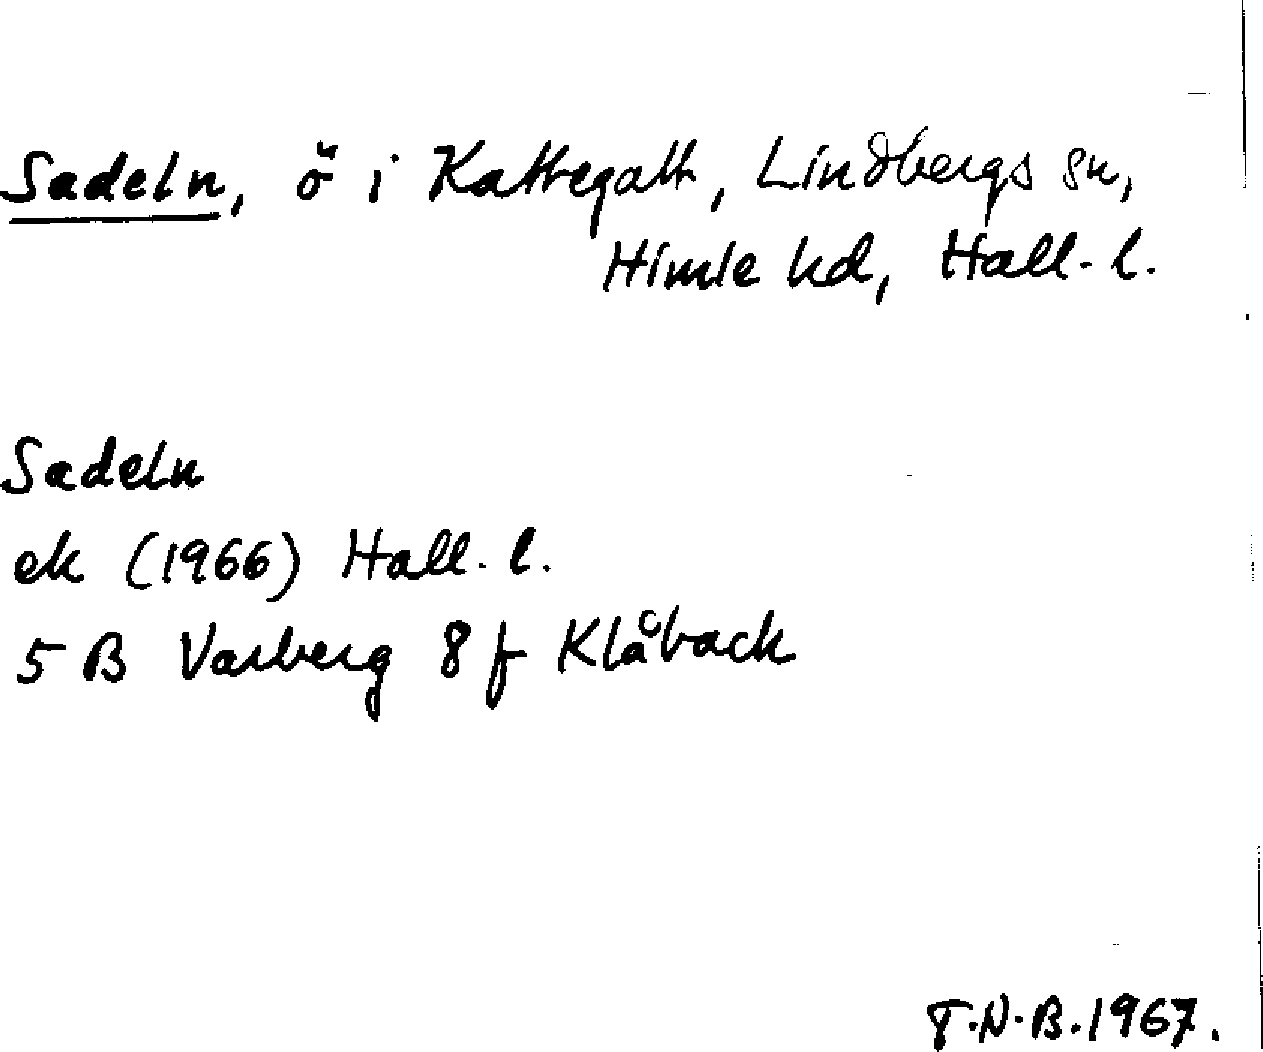 Sadeln, ö i Kattegatt, Lindbergs sn,
Himle hd, Hall. l.
Sadeln
ek (1966) Hall. l.
5 B Varberg 8 f Klåback
T.N.B. 1967.